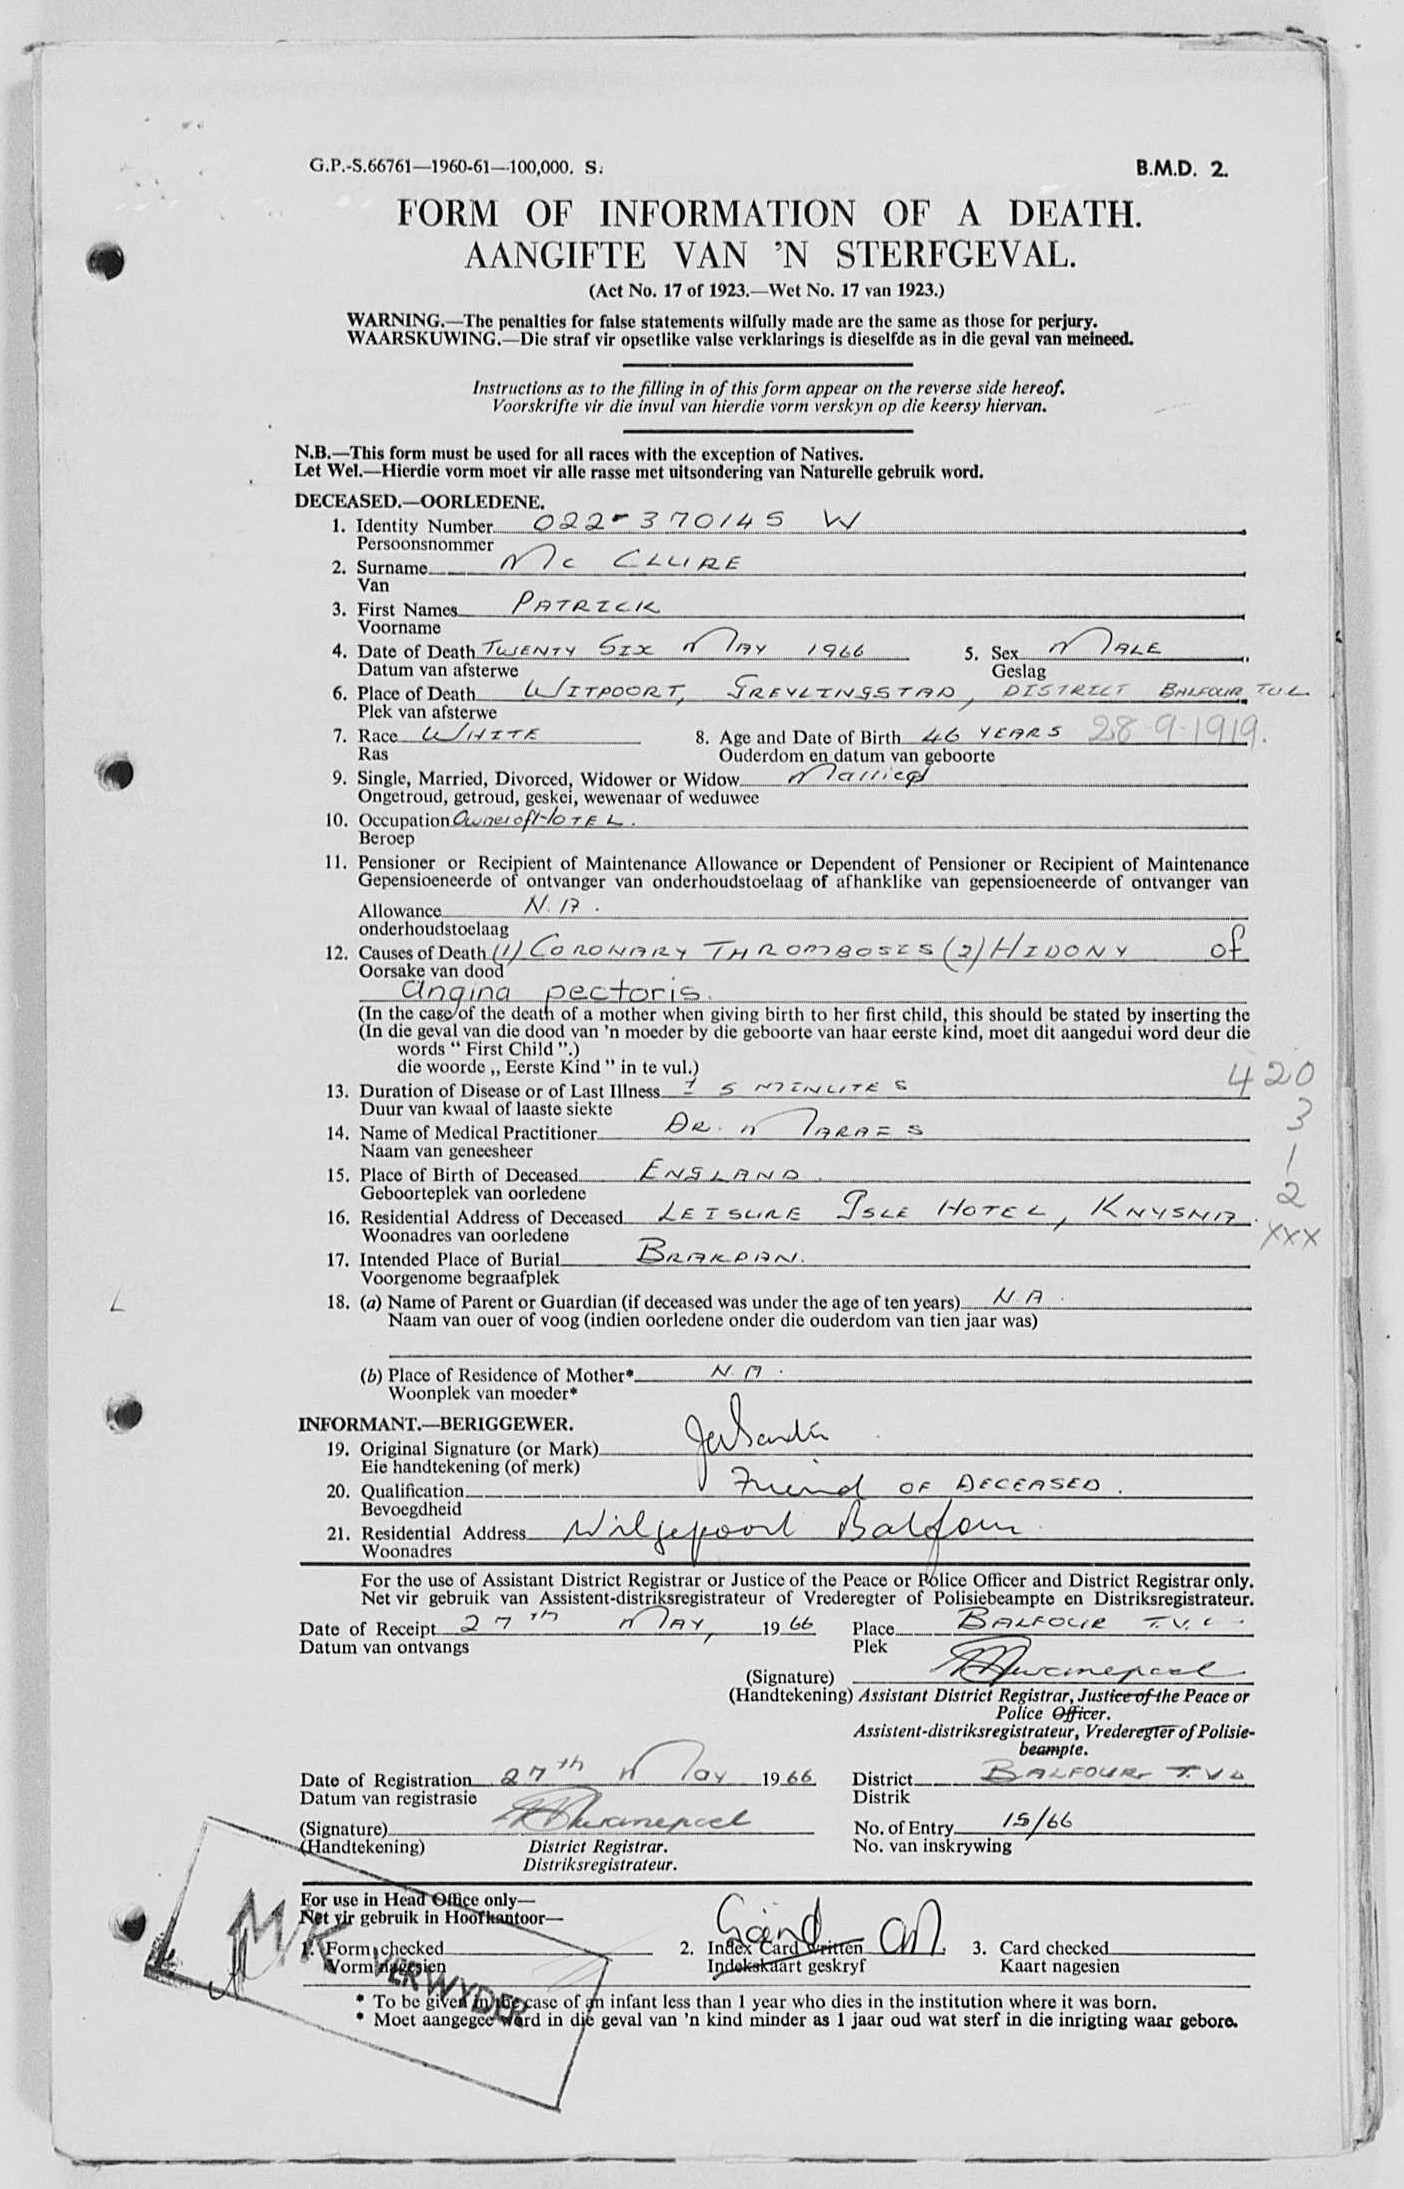 G.P.-S.66761—1960-61—100,000. S.
B.M.D. 2.
FORM OF INFORMATION OF A DEATH.
AANGIFTE VAN 'N STERFGEVAL.
(Act No. 17 of 1923.—Wet No. 17 van 1923.)
WARNING.—The penalties for false statements wilfully made are the same as those for perjury.
WAARSKUWING.—Die straf vir opsetlike valse verklarings is dieselfde as in die geval van meineed.
Instructions as to the filling in of this form appear on the reverse side hereof.
Voorskrifte vir die invul van hierdie vorm verskyn op die keersy hiervan.
N.B.—This form must be used for all races with the exception of Natives.
Let Wel.—Hierdie vorm moet vir alle rasse met uitsondering van Naturelle gebruik word.
DECEASED.—OORLEDENE.
1. Identity Number 022-370145 W
Persoonsnommer
2. Surname Mc CLURE
Van
3. First Names PATRICK
Voorname
4. Date of Death TWENTY SIX MAY 1966 5. Sex MALE
Datum van afsterwe Geslag
6. Place of Death WITPOORT, GREYLINGSTAD, DISTRICT BALFOUR TVL
Plek van afsterwe
7. Race WHITE 8. Age and Date of Birth 46 YEARS 28-9-1919.
Ras Ouderdom en datum van geboorte
9. Single, Married, Divorced, Widower or Widow Married
Ongetroud, getroud, geskei, wewenaar of weduwee
10. Occupation Owner of HOTEL.
Beroep
11. Pensioner or Recipient of Maintenance Allowance or Dependent of Pensioner or Recipient of Maintenance
Gepensioeneerde of ontvanger van onderhoudstoelaag of afhanklike van gepensioeneerde of ontvanger van
Allowance N.A.
onderhoudstoelaag
12. Causes of Death (1) CORONARY THROMBOSIS (2) HIDONY of
Oorsake van dood
angina pectoris.
(In the case of the death of a mother when giving birth to her first child, this should be stated by inserting the
(In die geval van die dood van 'n moeder by die geboorte van haar eerste kind, moet dit aangedui word deur die
words " First Child ".)
die woorde „ Eerste Kind " in te vul.)
420
13. Duration of Disease or of Last Illness ± 5 MINUTES
Duur van kwaal of laaste siekte
3
14. Name of Medical Practitioner DR. MARAES
Naam van geneesheer
1
15. Place of Birth of Deceased ENGLAND.
Geboorteplek van oorledene
2
16. Residential Address of Deceased LEISURE ISLE HOTEL, KNYSNA.
Woonadres van oorledene
XXX
17. Intended Place of Burial BRAKPAN.
Voorgenome begraafplek
18. (a) Name of Parent or Guardian (if deceased was under the age of ten years) N.A.
Naam van ouer of voog (indien oorledene onder die ouderdom van tien jaar was)
(b) Place of Residence of Mother* N.A.
Woonplek van moeder*
INFORMANT.—BERIGGEWER.
19. Original Signature (or Mark)
Eie handtekening (of merk)
20. Qualification Friend OF DECEASED.
Bevoegdheid
21. Residential Address Wilgepoort Balfour
Woonadres
For the use of Assistant District Registrar or Justice of the Peace or Police Officer and District Registrar only.
Net vir gebruik van Assistent-distriksregistrateur of Vrederegter of Polisiebeampte en Distriksregistrateur.
Date of Receipt 27th MAY, 1966 Place BALFOUR T.V.L.
Datum van ontvangs Plek
(Signature)
(Handtekening) Assistant District Registrar, Justice of the Peace or
Police Officer.
Assistent-distriksregistrateur, Vrederegter of Polisie-
beampte.
Date of Registration 27th May 1966 District BALFOUR T.V.L.
Datum van registrasie Distrik
(Signature) No. of Entry 15/66
(Handtekening) District Registrar. No. van inskrywing
Distriksregistrateur.
For use in Head Office only—
Net vir gebruik in Hoofkantoor—
1. Form checked 2. Index Card written 3. Card checked
Vorm nagesien Indekskaart geskryf Kaart nagesien
M/K VERWYDER
* To be given in the case of an infant less than 1 year who dies in the institution where it was born.
* Moet aangegee word in die geval van 'n kind minder as 1 jaar oud wat sterf in die inrigting waar gebore.